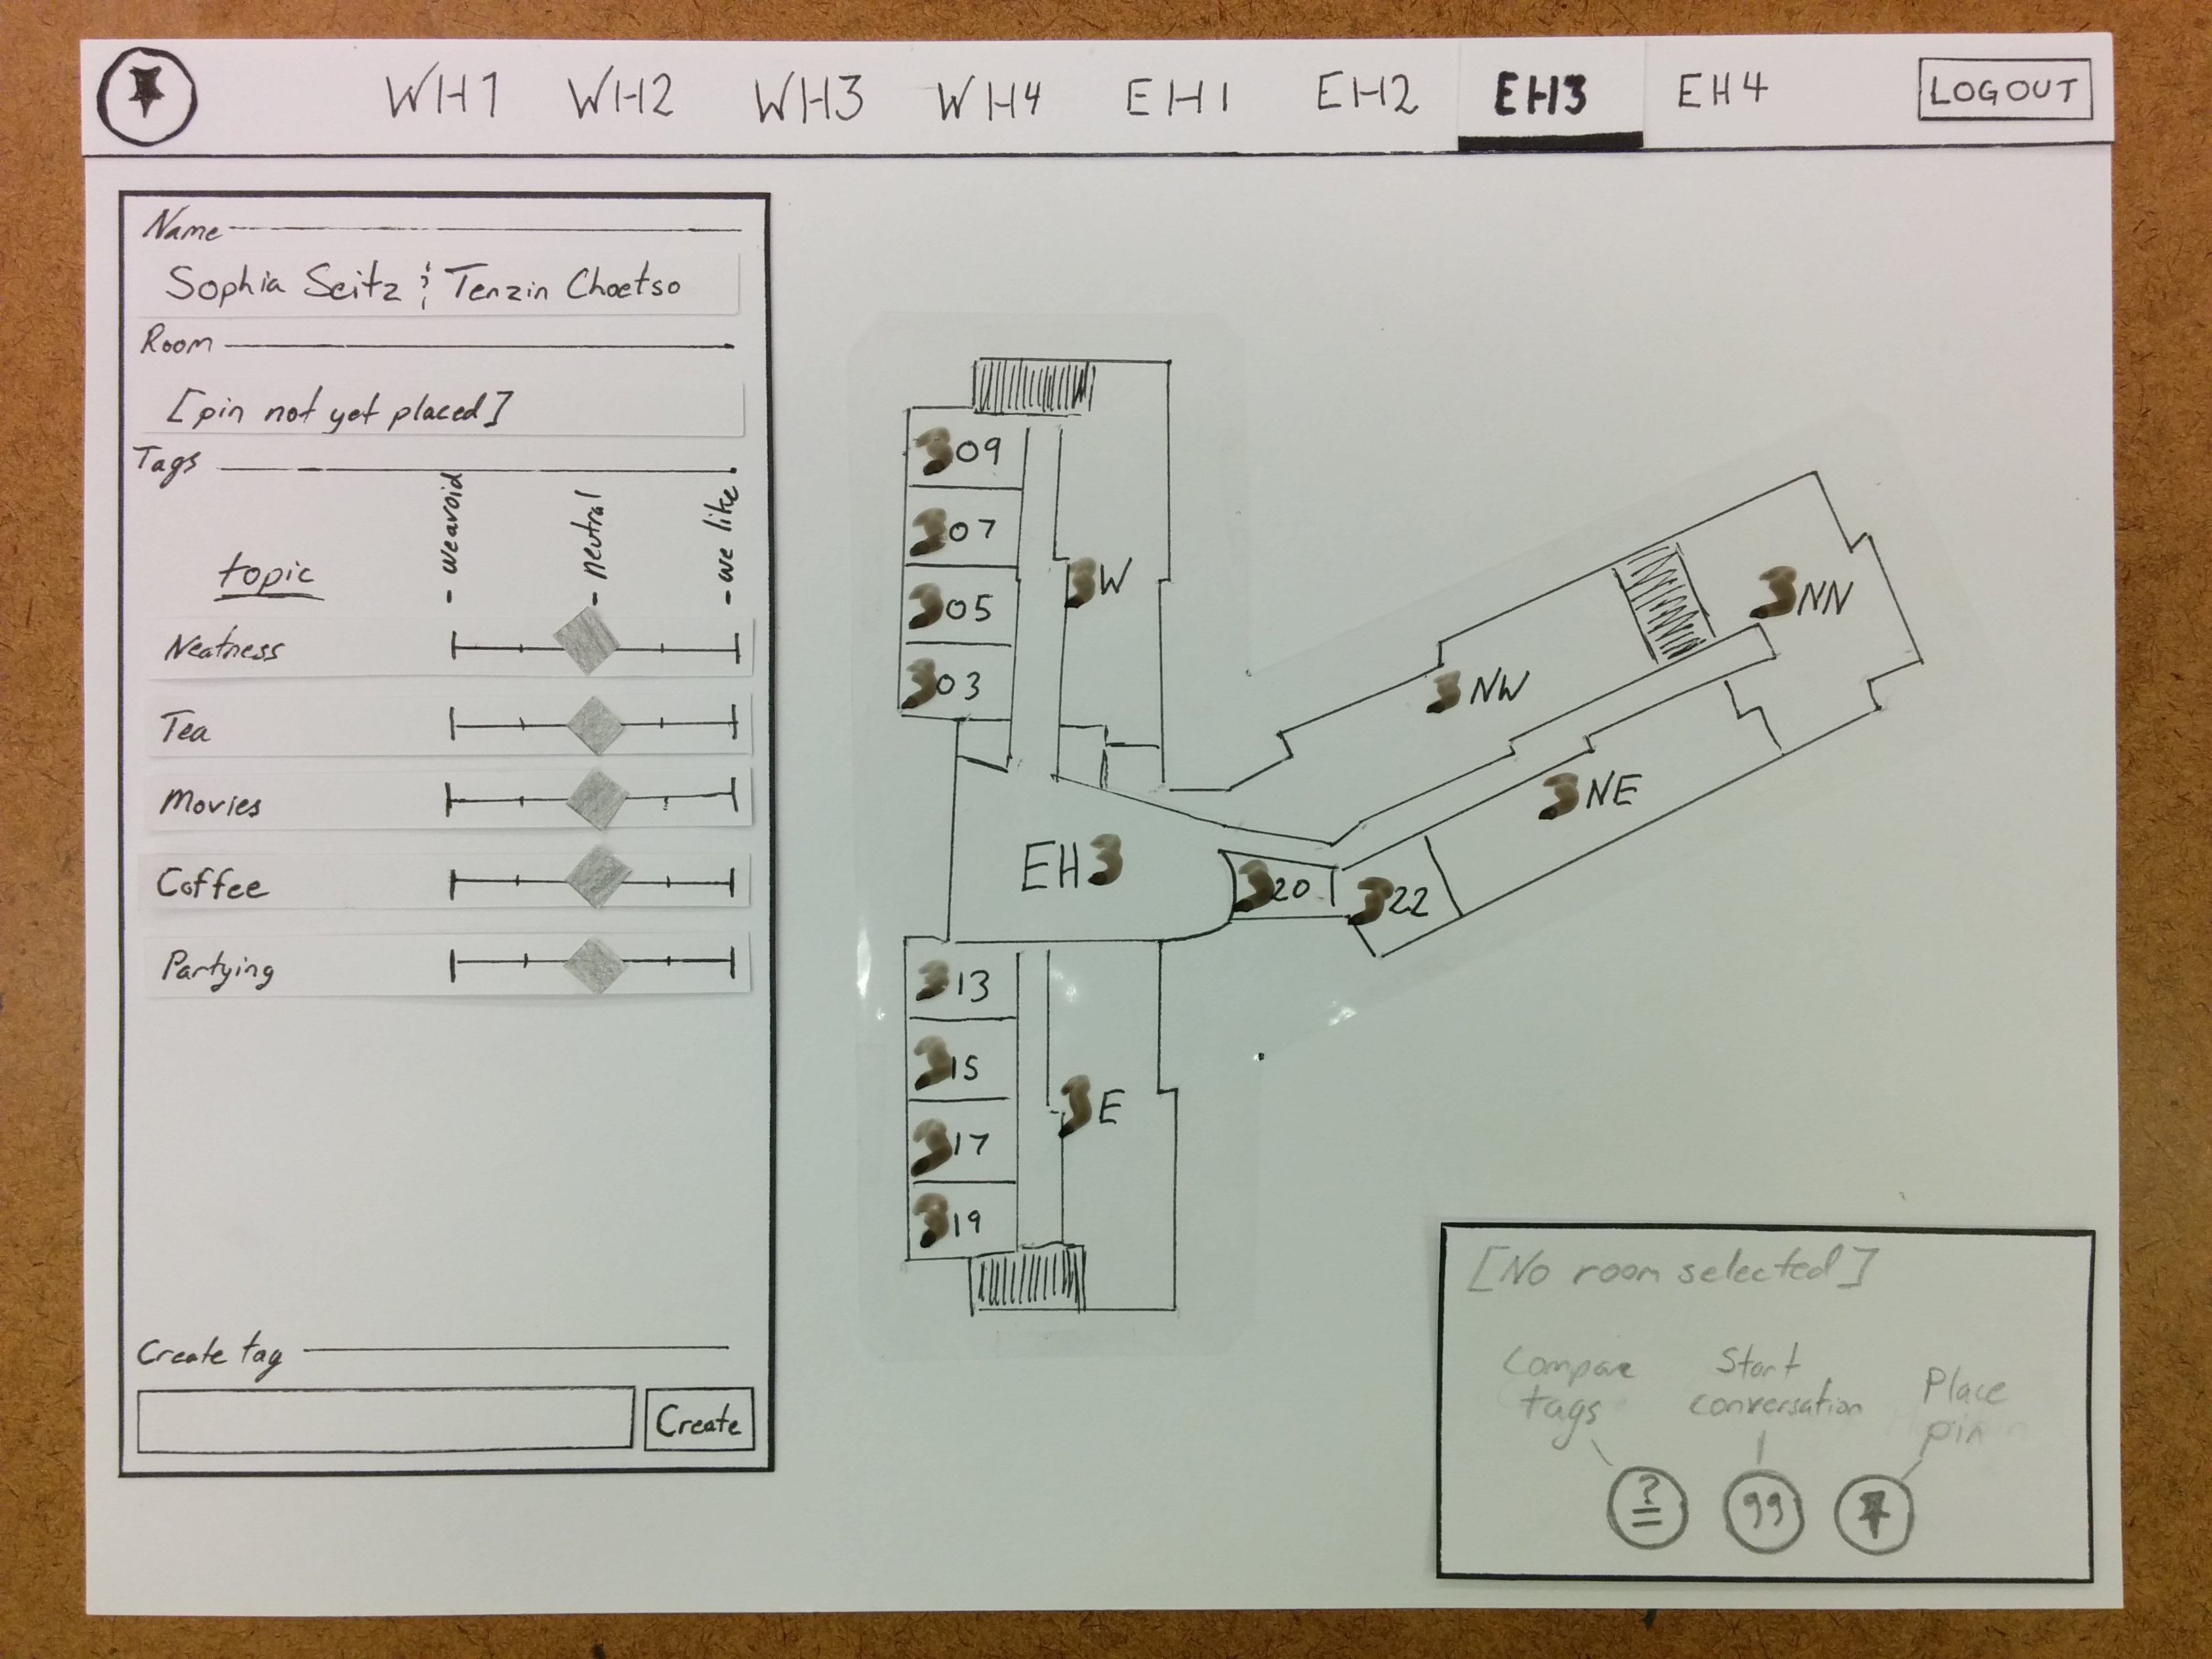 WH1 WH2 WH3 WH4 EH1 EH2 EH3 EH4 LOGOUT
Name
Sophia Seitz & Tenzin Choetso
Room
[pin not yet placed]
Tags
topic - we avoid - neutral - we like
Neatness
Tea
Movies
Coffee
Partying
Create tag
Create
309
307
3W
305
303
3NN
3NW
3NE
EH3
320
322
313
315
3E
317
319
[No room selected]
Compare tags
Start conversation
Place pin
?
=
99